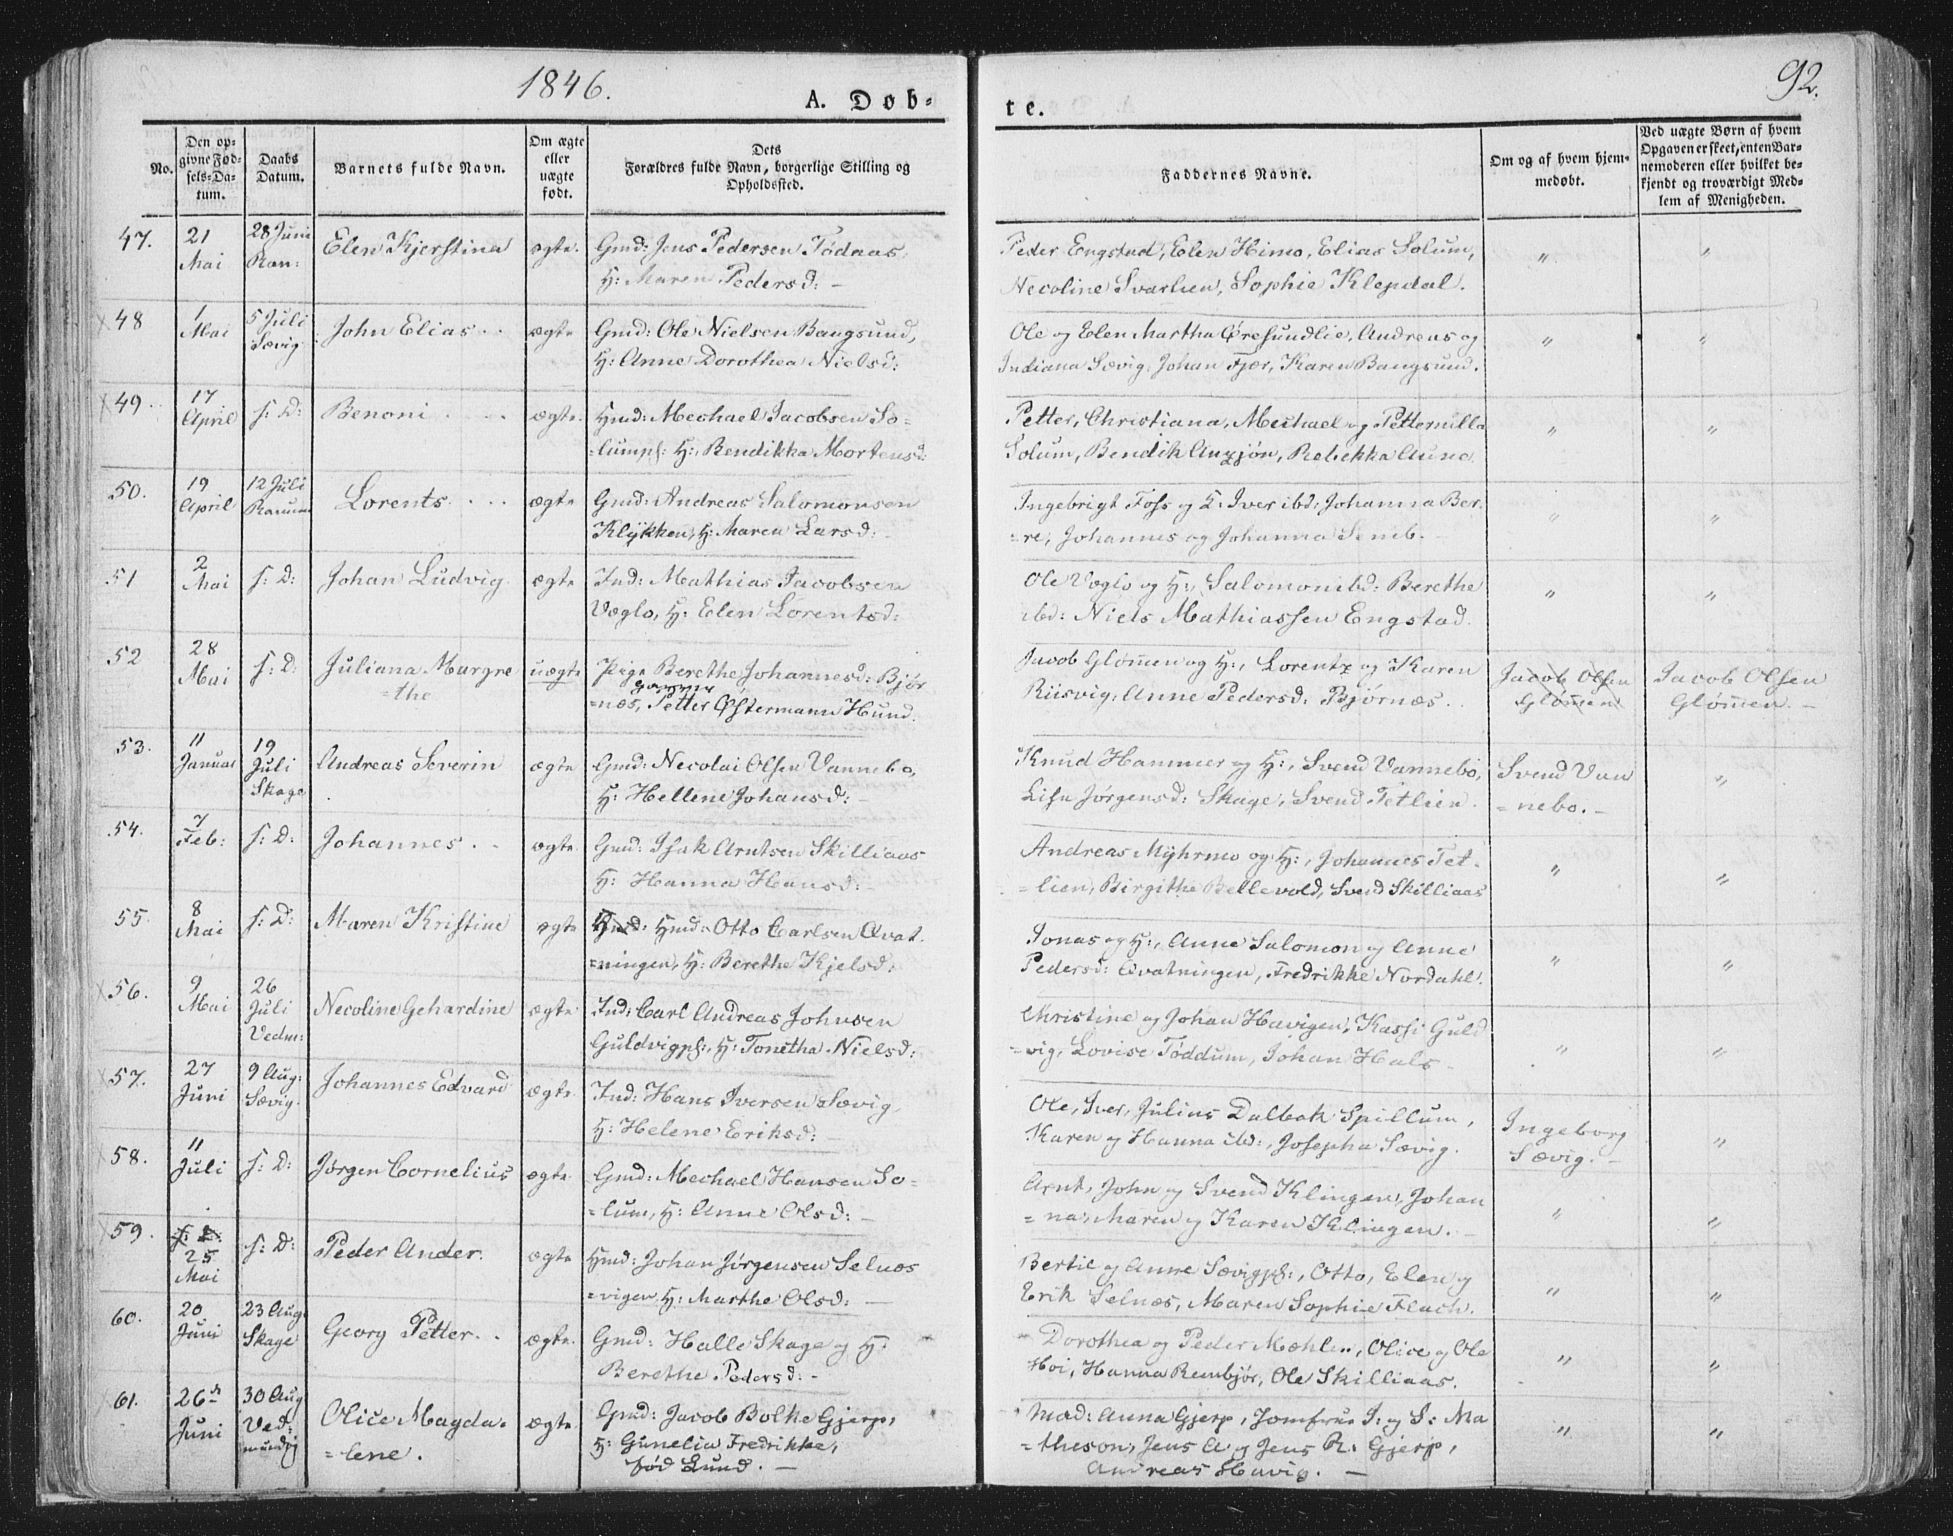 1846.
92.
A. Døb-
te.
No.
Den op-
givne Fød-
sels-Da-
tum.
Daabs
Datum.
Barnets fulde Navn.
Om ægte
eller
uægte
født.
Dets
Forældres fulde Navn, borgerlige Stilling og
Opholdssted.
Faddernes Navne.
Om og af hvem hjem-
medøbt.
Ved uægte Børn af hvem
Opgaven er skeet, enten Bar-
nemoderen eller hvilket be-
kjendt og troværdigt Med-
lem af Menigheden.
47.
21
Mai
28 Juni
Ran:
Elen Kjerstina
ægte.
Gmd: Jens Pedersen Fødnas,
H: Maren Pedersd: -
Peder Engstad, Elen Himo, Elias Solum,
Necoline Svarlien, Sophie Klepdal.
"
"
48
1
Mai
5 Juli
Sævig
John Elias . .
ægte
Gmd: Ole Nielsen Bangsund,
H: Anne Dorothea Nielsd:
Ole og Elen Martha Øresundlie, Andreas og
Indiana Sævig, Johan Fjær, Karen Bangsund.
"
"
49.
17
April
s: D:
Benoni . . .
ægte.
Hmd: Mechael Jacobsen So-
-lumpl: H: Bendikka Mortensd:
Petter, Christiana, Mechael og Petternilla
Solum, Bendik , Rebekka Aune.
"
"
50.
19
April
12 Juli
Ranum
Lorents . . .
ægte
Gmd: Andreas Salomonsen
Klykken, H: Maren Larsd: -
Ingebrigt Foss og H: Iver ibd: Johanna Ber-
-re, Johannes og Johanna Semb. -
"
"
51
2
Mai
s: D:
Johan Ludvig.
ægte
Ind: Mathias Jacobsen
Væglo, H: Elen Lorentsd:
Ole Væglo og H:, Salomon ibd: Berethe
ibd: Niels Mathiassen Engstad.
"
"
52
28
Mai
s: D:
Juliana Margre
-the
uægte
Pige Berethe Johannesd: Bjør
-næs, Petter Østermann Hund.
Jacob Glømen og H:, Lorentz og Karen
Riisvig, Anne Pedersd: Bjørnæs. .
Jacob Olsen
Glømen
Jacob Olsen
Glømen. -
53.
11
Januar
19
Juli
Skage
Andreas Severin
ægte
Gmd: Necolai Olsen Vannebo,
H: Hellene Johansd: -
Knud Hammer og H:, Svend Vannebo,
Lisa Jørgensd: Skage, Svend Tetlien.
Svend Van
-nebo. -
"
54.
7
Feb:
s: D:
Johannes . .
ægte.
Gmd: Isak Arntsen Skilliaas
H: Hanna Hansd: -
Andreas Myhrmo og H:, Johannes Tet-
-lien, Birgithe Bellevold, Svend Skilliaas
"
"
55.
8
Mai
s: D:
Maren Kristine
ægte
Gmd: Hmd: Otto Carlsen Avat-
-ningen, H: Berethe Kjelsd:
Jonas og H:, Anne Salomon og Anne
Pedersd: Avatningen, Fredrikke Nordahl.
"
"
56.
9
Mai
26
Juli
Vedm:
Necoline Gehardine
ægte
Ind: Carl Andreas Johnsen
Guldvigpl:, H: Tonetha Nielsd:
Christine og Johan Havigen, Kassi Guld
-vig, Lovise Føddum, Johan Hals -
"
"
57.
27
Juni
9 Aug:
Sævig.
Johannes Edvard
ægte
Ind: Hans Iversen Sævig,
H: Helene Eriksd:
Ole, Iver, Julius Dalbak Spillum,
Karen og Hanna ibd:, Josepha Sævig.
Ingeborg
Sævig. -
"
58.
11
Juli
s: D:
Jørgen Cornelius
ægte
Gmd: Mechael Hansen So-
-lum, H: Anne Olsd: -
Arnt, John og Svend Klingen, Johan
-na, Maren og Karen Klingen. -
"
"
59.
25
Mai
s: D:
Peder Ander.
ægte
Hmd: Johan Jørgensen Selnæs
-vigen, H: Marthe Olsd: -
Bertil og Anne Sævigpl:, Otto, Elen og
Erik Selnæs, Maren Sophie Flach.
"
"
60.
20
Juni
23 Aug:
Skage
Georg Petter. .
ægte.
Gmd: Halle Skage og H:
Berethe Pedersd: -
Dorothea og Peder Mæhle., Olive og Ole
Hoi, Hanna Rembjør, Ole Skilliaas.
"
"
61.
26de
Juni
30 Aug
Ved-
mundvig
Olice Magda-
-lene.
ægte
Gmd: Jacob Bolke Gjerp,
H: Gunelia Fredrikke,
fød Lund. -
Mad: Anna Gjerp, Jomfrue I: og S: Ma
-theson, Jens A. og Jens R. Gjerp,
Andreas Havig. -
"
"